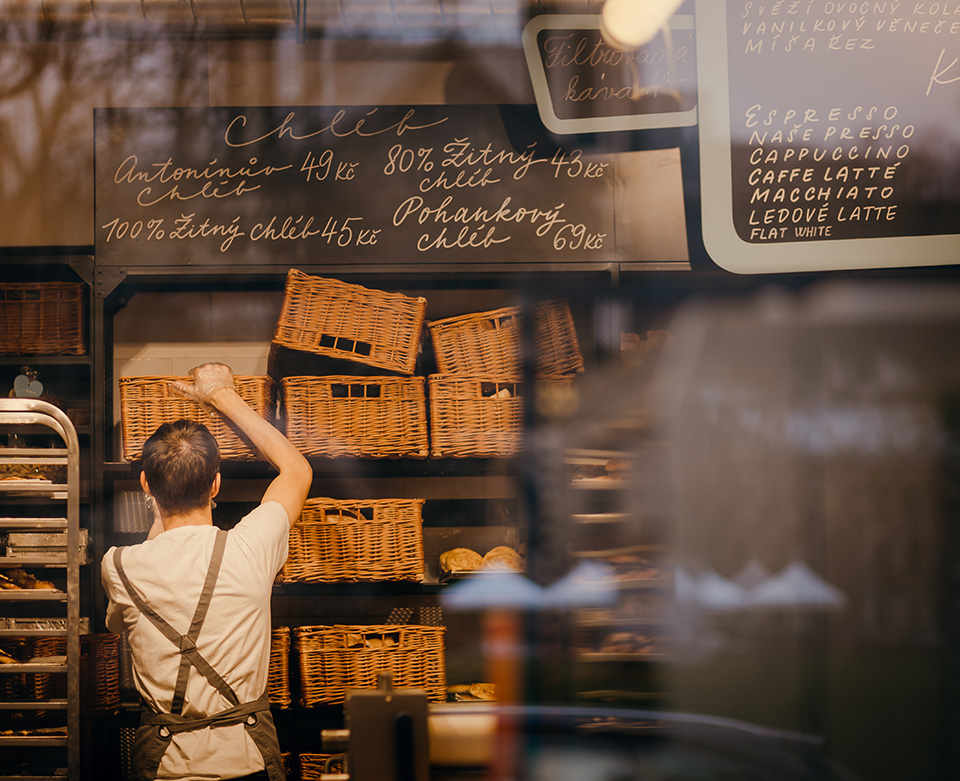 Chléb
Antonínův 49 Kč
chléb
80% Žitný 43 Kč
chléb
100% Žitný chléb 45 Kč
Pohankový
chléb 69 Kč
Filtrovaná
káva
SVĚŽÍ OVOCNÝ
VANILKOVÝ VĚNEČE
MÍŠA ŘEZ
ESPRESSO
NAŠE PRESSO
CAPPUCCINO
CAFFE LATTÉ
MACCHIATO
LEDOVÉ LATTE
FLAT WHITE